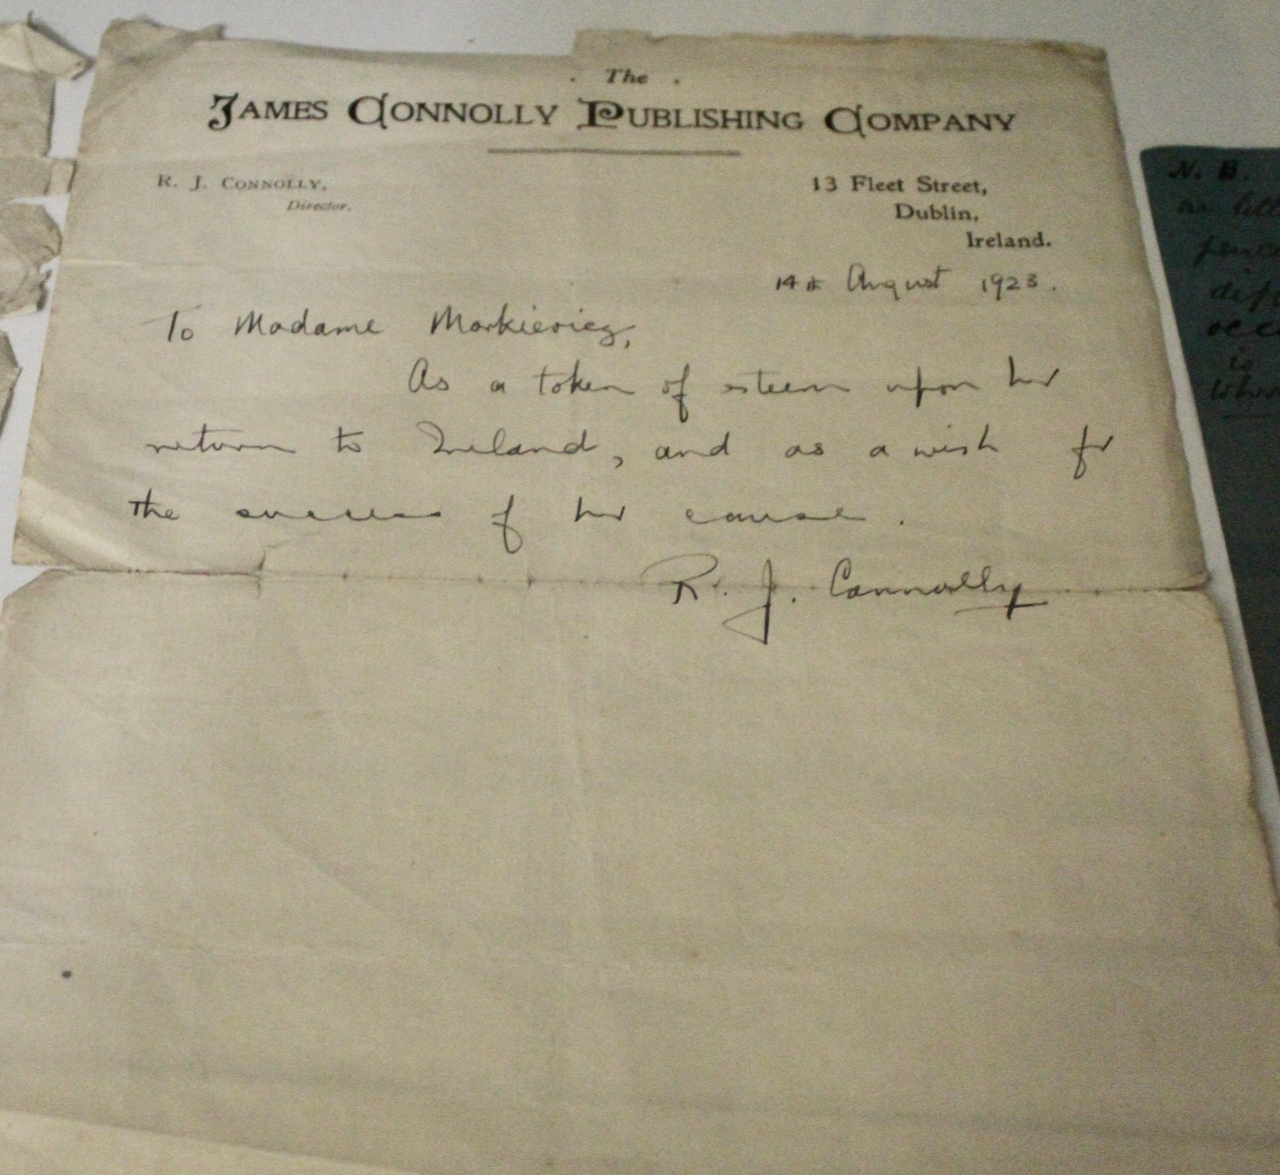 . The .
JAMES CONNOLLY PUBLISHING COMPANY
R. J. CONNOLLY,
Director.
13 Fleet Street,
Dublin,
Ireland.
14th August 1923.
To Madame Markievicz,
As a token of esteem upon her
return to Ireland, and as a wish for
the success of her cause.
R. J. Connolly
N. B.
as
is